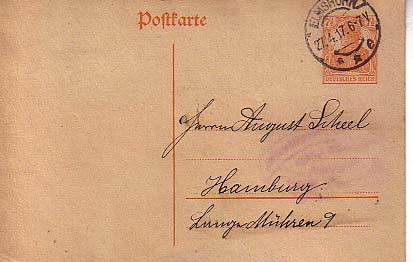 Postkarte
ELMSHORN
27.4.17.6-7N
* * c
7½
DEUTSCHES REICH
Herrn August Scheel
Hamburg
Lange Mühren 9